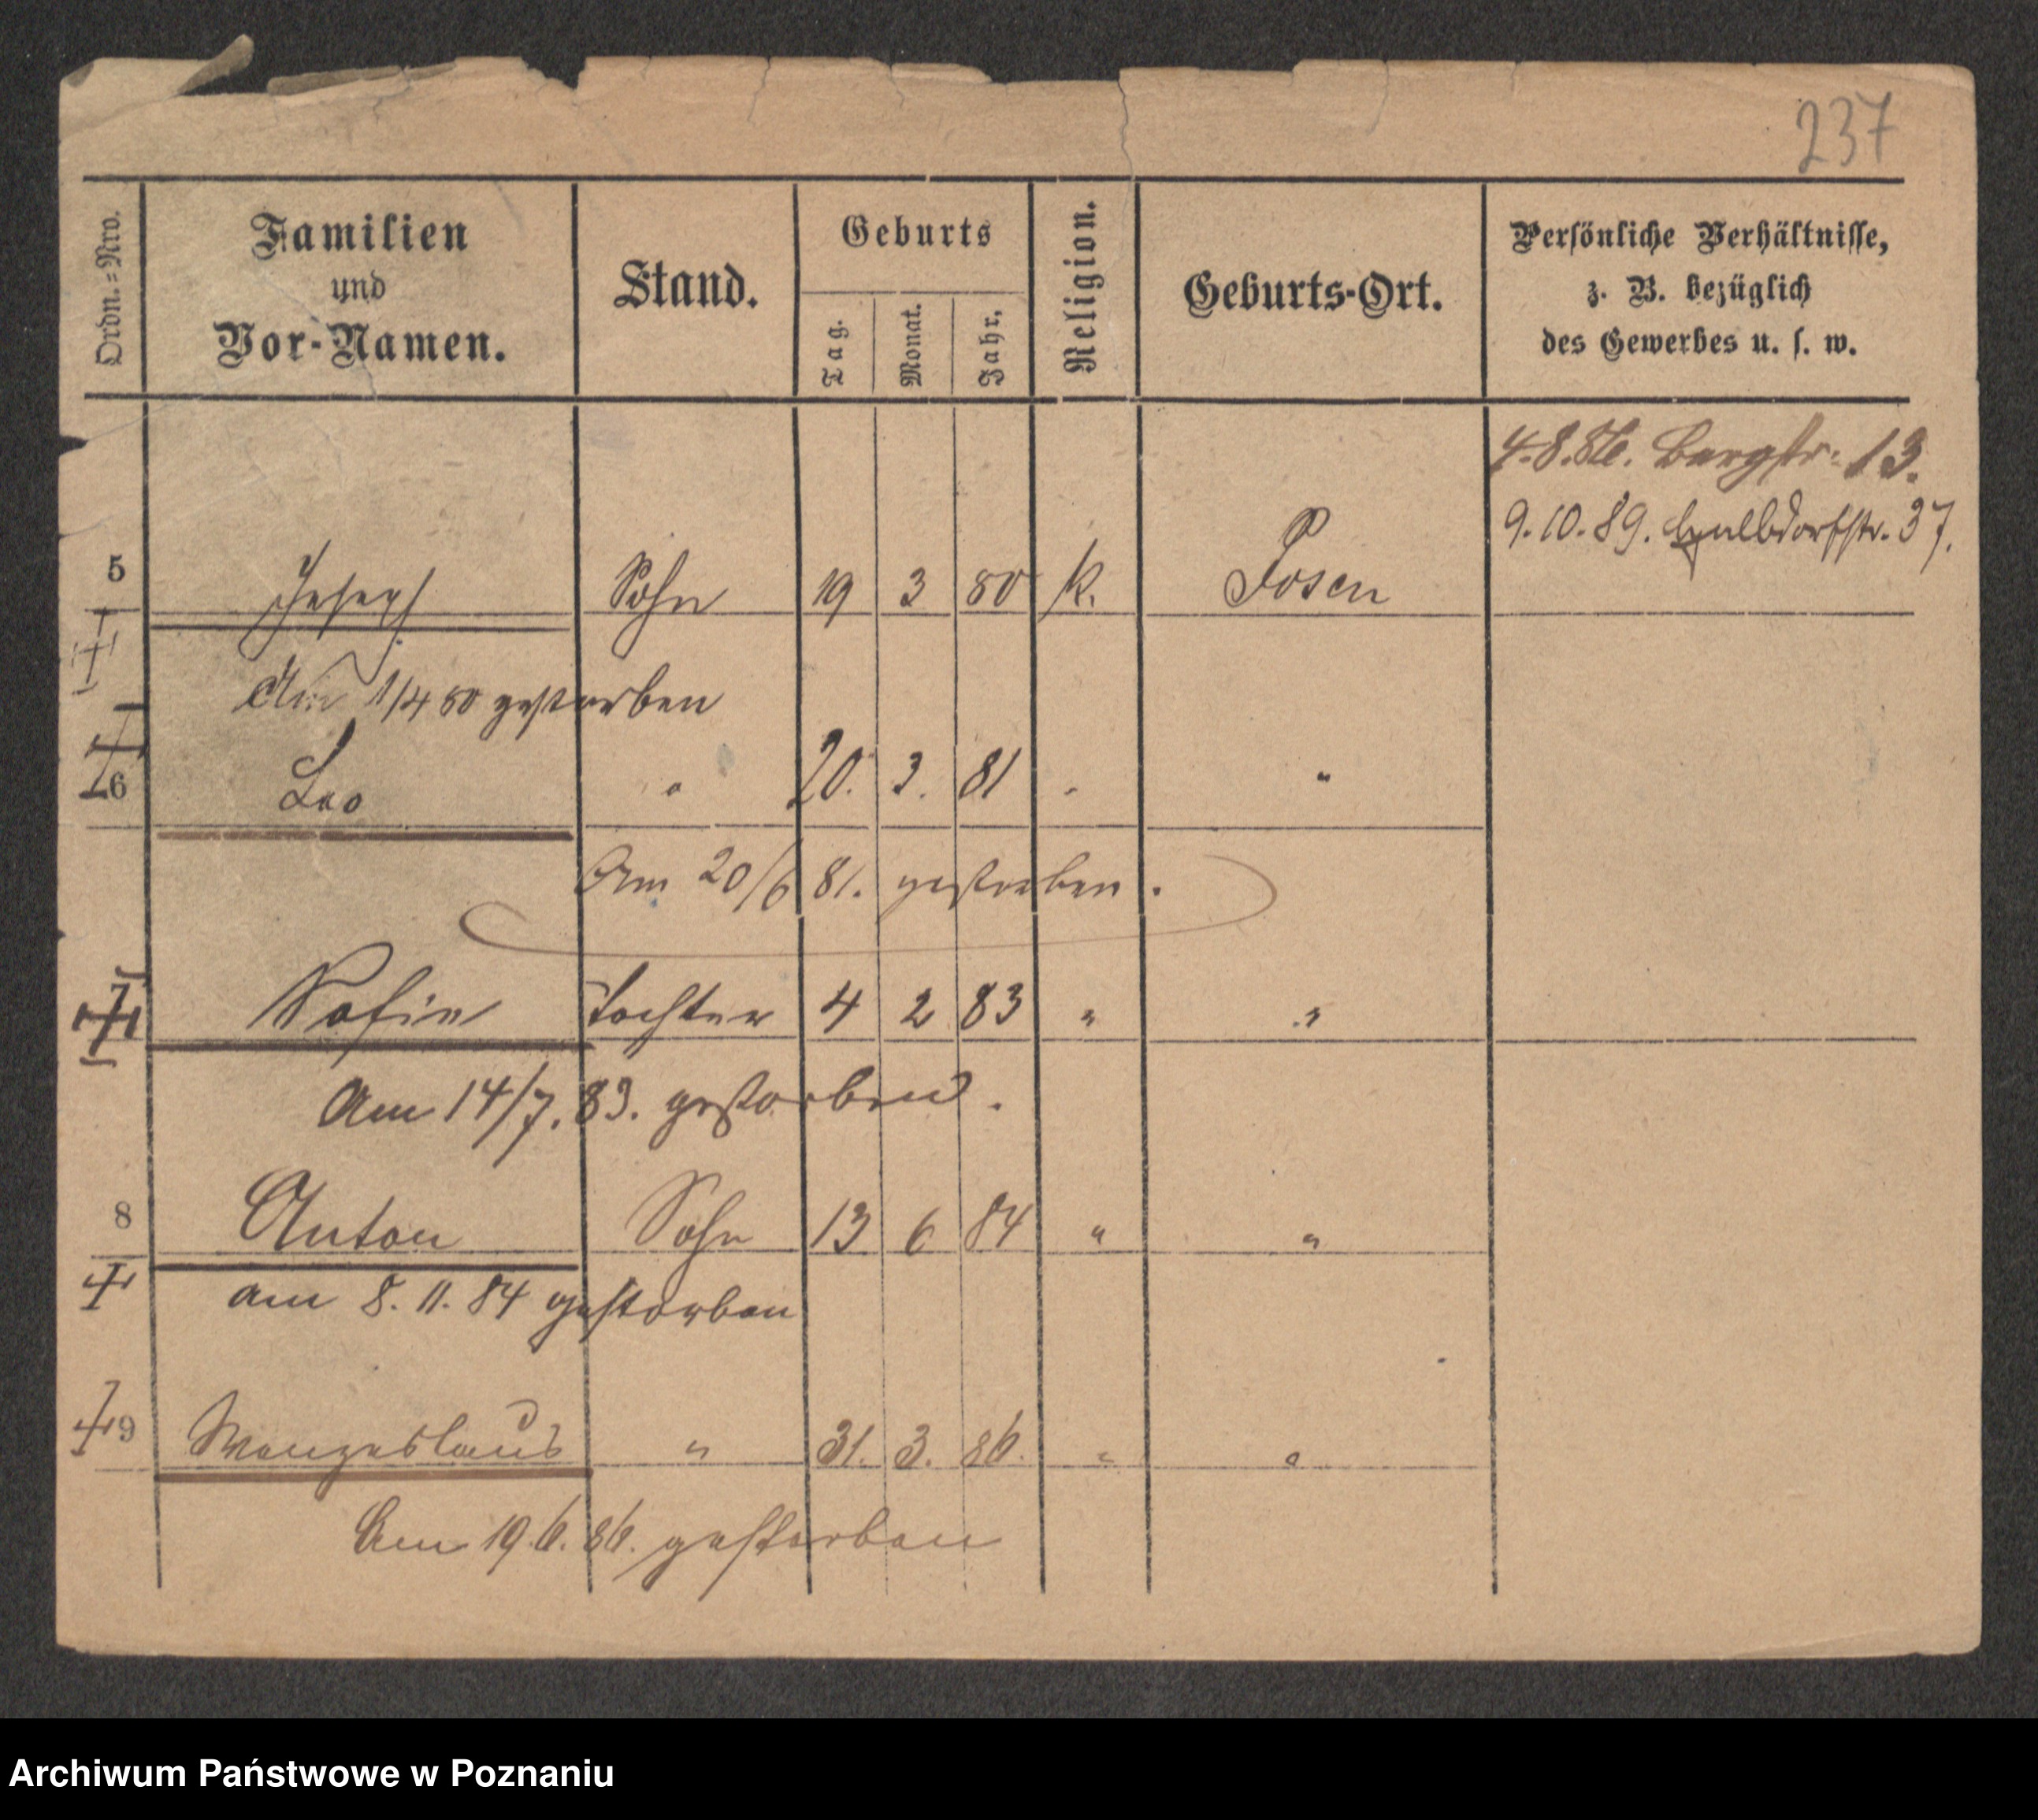 237
Ordn.=Nro.
Familien
und
Vor-Namen.
Stand.
Geburts
Tag.
Monat.
Jahr.
Religion.
Geburts-Ort.
Persönliche Verhältnisse,
z. B. bezüglich
des Gewerbes u. s. w.
Bergstr. 13.
9.10.89. Halbdorfstr. 37.
5 Joseph Sohn 19 3 80 k. Posen
Am 1/4 80 gestorben
6 Leo " 20. 3. 81 " "
Am 20/6 81. gestorben.
7 Sofie Tochter 4 2 83 " "
Am 14/7. 83. gestorben.
8 Anton Sohn 13 6 84 " "
am 8. 11. 84 gestorben
9 Wenzeslaus " 31. 3. 86. " "
Am 19.6.86. gestorben
Archiwum Państwowe w Poznaniu